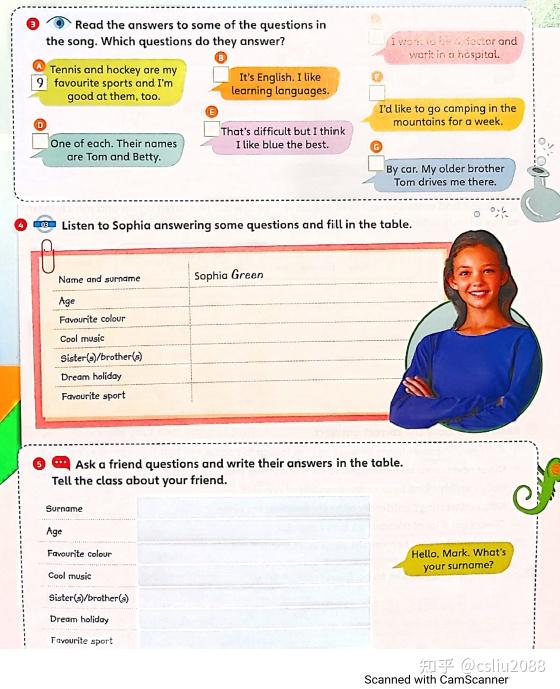 3 Read the answers to some of the questions in
the song. Which questions do they answer?
A
9
Tennis and hockey are my
favourite sports and I'm
good at them, too.
B
It's English. I like
learning languages.
I want to be a doctor and
work in a hospital.
D
One of each. Their names
are Tom and Betty.
E
That's difficult but I think
I like blue the best.
F
I'd like to go camping in the
mountains for a week.
G
By car. My older brother
Tom drives me there.
4 03 Listen to Sophia answering some questions and fill in the table.
Name and surname Sophia Green
Age
Favourite colour
Cool music
Sister(s)/brother(s)
Dream holiday
Favourite sport
5 Ask a friend questions and write their answers in the table.
Tell the class about your friend.
Surname
Age
Favourite colour
Cool music
Sister(s)/brother(s)
Dream holiday
Favourite sport
Hello, Mark. What's
your surname?
知乎 @csliu2088
Scanned with CamScanner